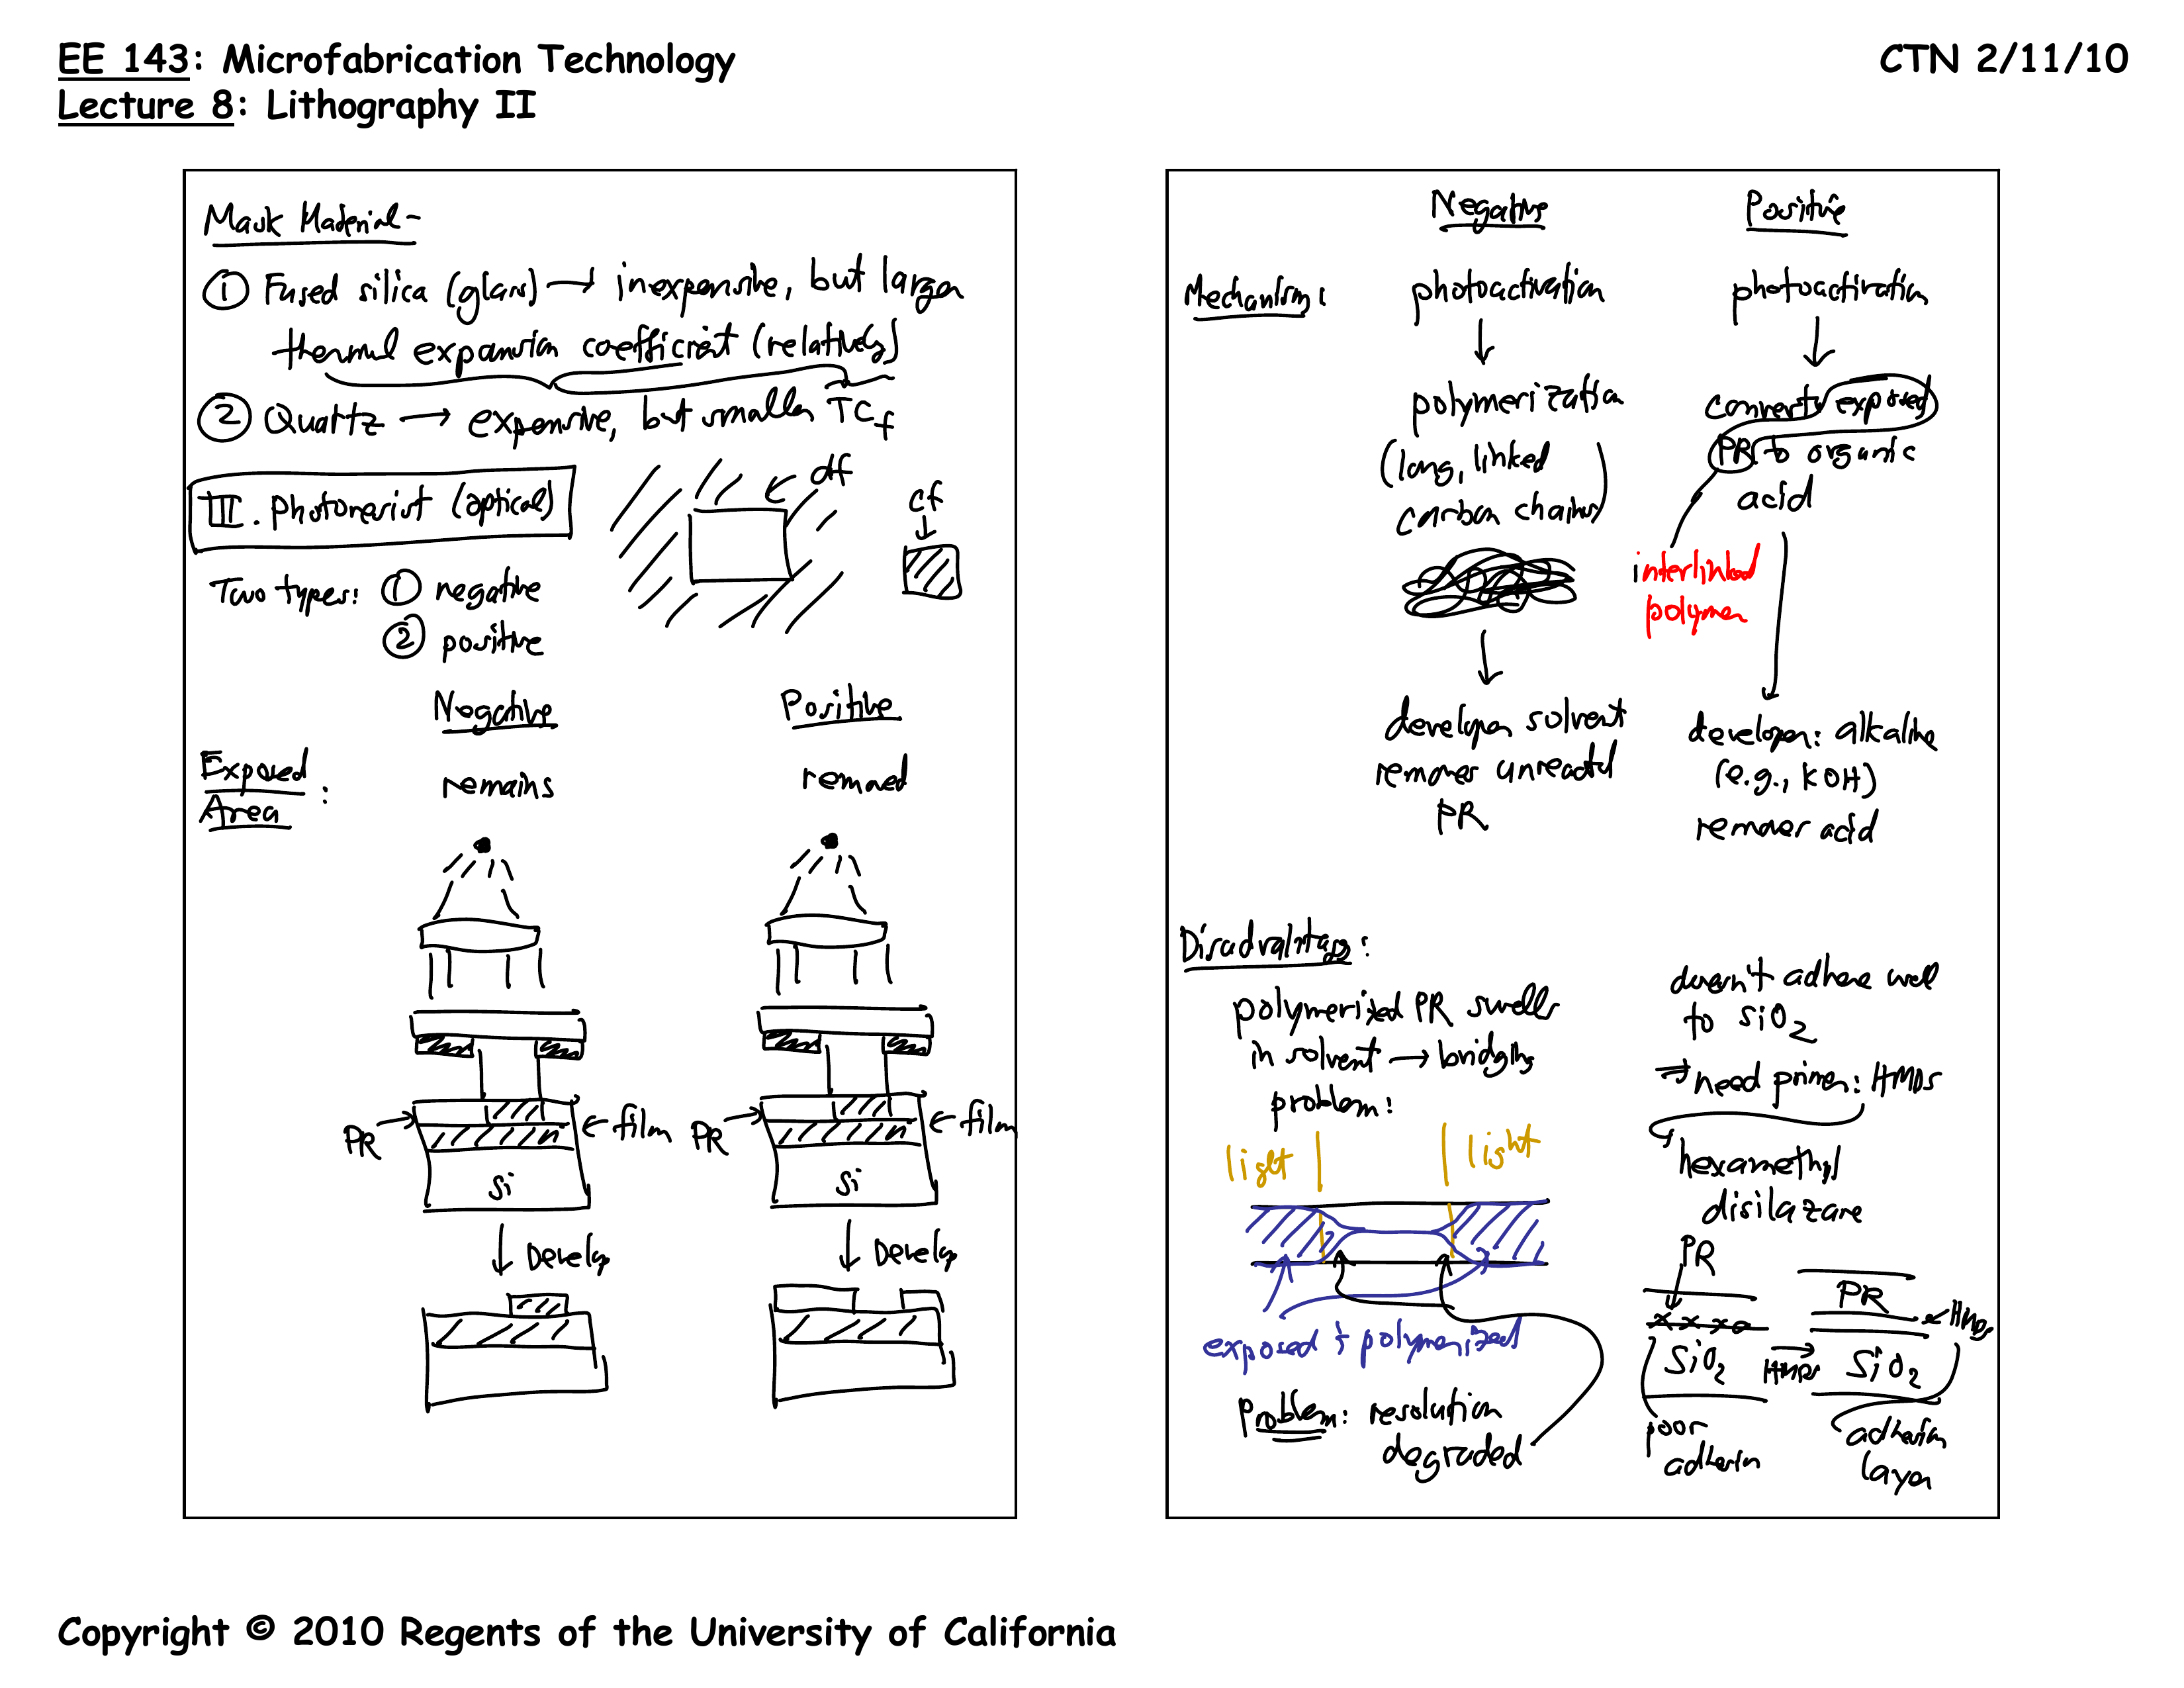 EE 143: Microfabrication Technology
Lecture 8: Lithography II
CTN 2/11/10
Mask Material-
① Fused silica (glass) → inexpensive, but larger
thermal expansion coefficient (relatively)
② Quartz → expensive, but smaller TCf
III. Photoresist (optical)
df
cf
Two types: ① negative
② positive
Negative Positive
Exposed Area: remains removed
PR film PR film
Si Si
Develop Develop
Negative Positive
Mechanism: photoactivation photoactivation
polymerization
(long, linked
carbon chains)
converts exposed
PR to organic
acid
interlinked
polymer
developer solvent
removes unreacted
PR
developer: alkaline
(e.g., KOH)
removes acid
Disadvantages:
polymerized PR swells
in solvent → bridging
problem:
light light
exposed & polymerized
Problem: resolution
degraded
doesn't adhere well
to SiO2
⇒ need primer: HMDS
hexamethyl
disilazane
PR
x x x o
SiO2
poor
adhesion
HMDS
PR
HMDS
SiO2
adhesion
layer
Copyright © 2010 Regents of the University of California